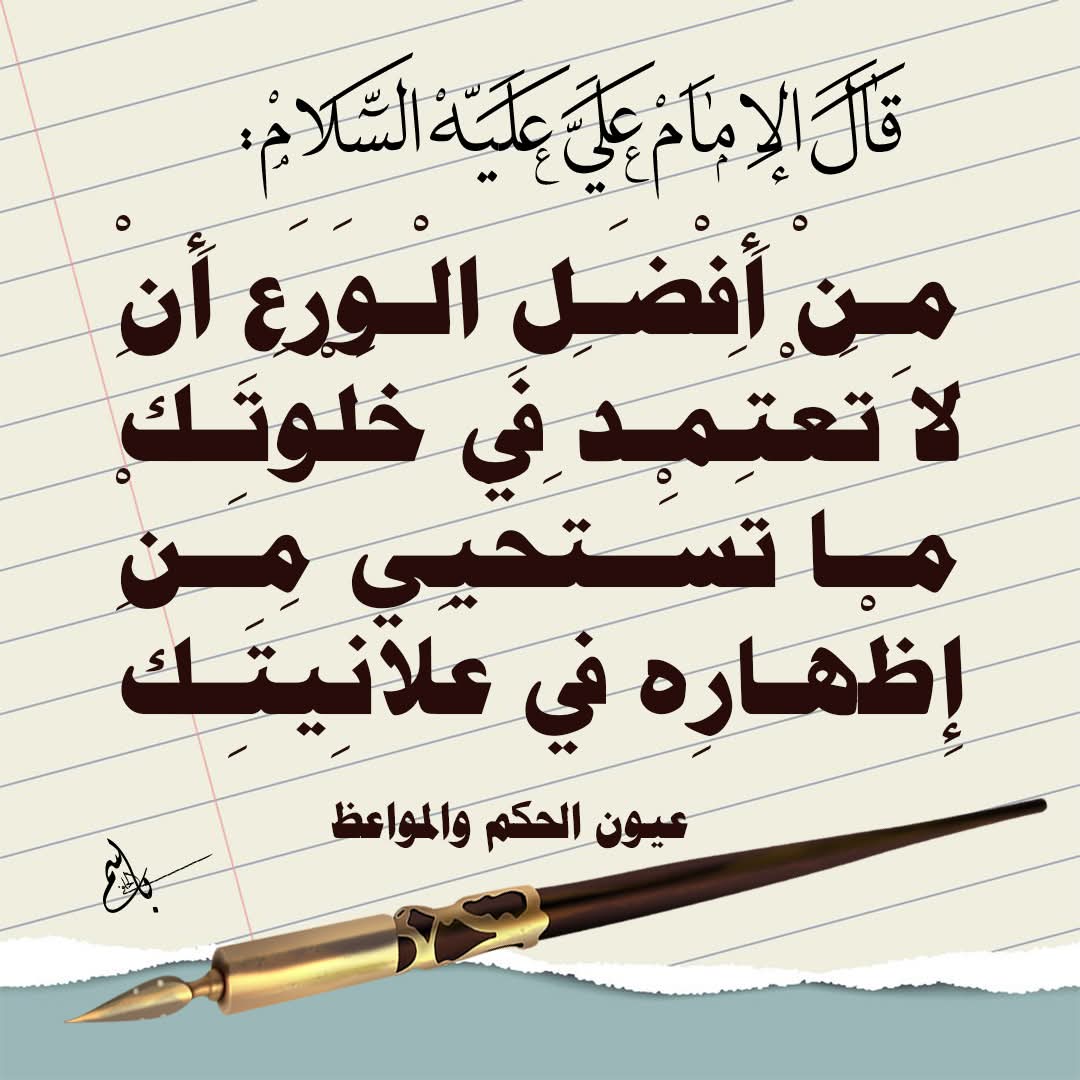 قَالَ الإِمَامْ عَلَيَّ عَلَيَهْ السَّلَامْ:
مِنْ أَفْضَلِ الْوَرَعِ أَنِْ
لاَ تَعْتِمِدْ فِي خلْوتَِكْ
ما تستحيِي مِنِ
إِظْهارِه في علانِيتَِك
عيون الحكم والمواعظ